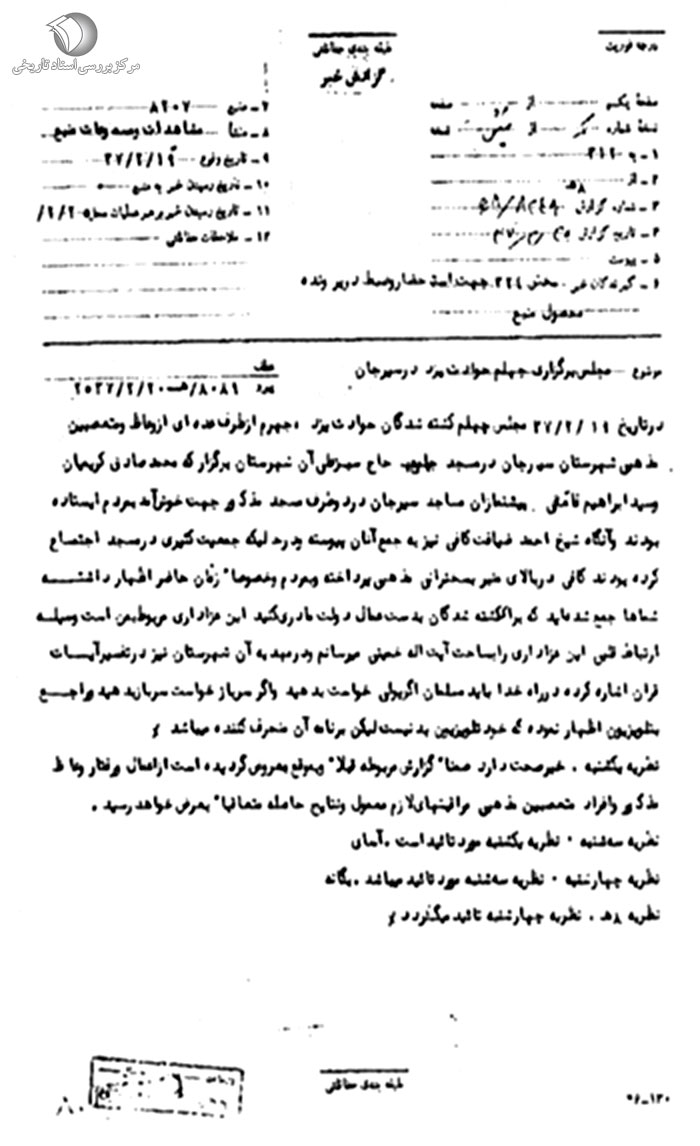 مرکز بررسی اسناد تاریخی
درجه فوریت
طبقه بندی حفاظتی
گزارش خبر
صفحه یکم از صفحه
نسخه شماره از نسخه
۱ ـ به ۳۱۲
۲ ـ از ۸ هـ
۳ ـ شماره گزارش
۴ ـ تاریخ گزارش
۵ ـ پیوست
۶ ـ گیرندگان خبر ـ بخش ۳۲۴ جهت استحضار وسط در پرونده
محصول منبع
۷ ـ منبع ۸۲۰۷
۸ ـ منشأ مشاهدات و مسموعات منبع
۹ ـ تاریخ وقوع ۳۷/۲/۱۹
۱۰ ـ تاریخ رسیدن خبر به منبع
۱۱ ـ تاریخ رسیدن خبر به رهبر عملیات
۱۲ ـ ملاحظات حفاظتی
موضوع ـ مجلس برگزاری چهلم حوادث یزد در سیرجان
عطف
پیرو ۸۰۸۱/ هـ ۸ ۲۵۳۷/۲/۲۰
در تاریخ ۳۷/۲/۱۹ مجلس چهلم کشته شدگان حوادث یزد ، جهرم از طرف عده ای از وعاظ و متعصبین
مذهبی شهرستان سیرجان در مسجد حاج آن شهرستان برگزار که محمد صادق کریمیان
و سید ابراهیم پیشنمازان مساجد سیرجان در دو طرف مسجد مذکور جهت خوش آمد به مردم ایستاده
بودند وآنگاه شیخ احمد ضیافت کافی نیز به جمع آنان پیوسته و در حالیکه جمعیت کثیری در مسجد اجتماع
کرده بودند کافی در بالای منبر بسخنرانی مذهبی پرداخته و بمردم وخصوصا" زنان حاضر اظهار داشته
شماها جمع شده اید که برا کشته شدگان بدست عمال دولت عزاداری کنید این عزاداری مربوط بمن است وسیله
ارتباط قلبی این عزاداری را بساحت آیت اله خمینی میرسانم و در مهدیه آن شهرستان نیز در تفسیر آیات
قران اشاره کرده در راه خدا باید مسلمان اگر پولی خواست بدهید واگر سرباز خواست سرباز بدهید و راجع
بتلویزیون اظهار نموده که خود تلویزیون بد نیست لیکن برنامه آن منحرف کننده میباشد /
نظریه یکشنبه . خبر صحت دارد ضمنا" گزارش مربوطه قبلا" و بموقع بعرض گردیده است از اعمال و رفتار وعاظ
مذکور وافراد متعصبین مذهبی مراقبتهای لازم معمول ونتایج حاصله متعاقبا" بعرض خواهد رسید .
نظریه سه شنبه . نظریه یکشنبه مورد تائید است . آسای
نظریه چهارشنبه . نظریه سه شنبه مورد تائید میباشد . یگانه
نظریه ۸ هـ . نظریه چهارشنبه تائید میگردد /
طبقه بندی حفاظتی
۸۰
۱۲۰ـ۹۶